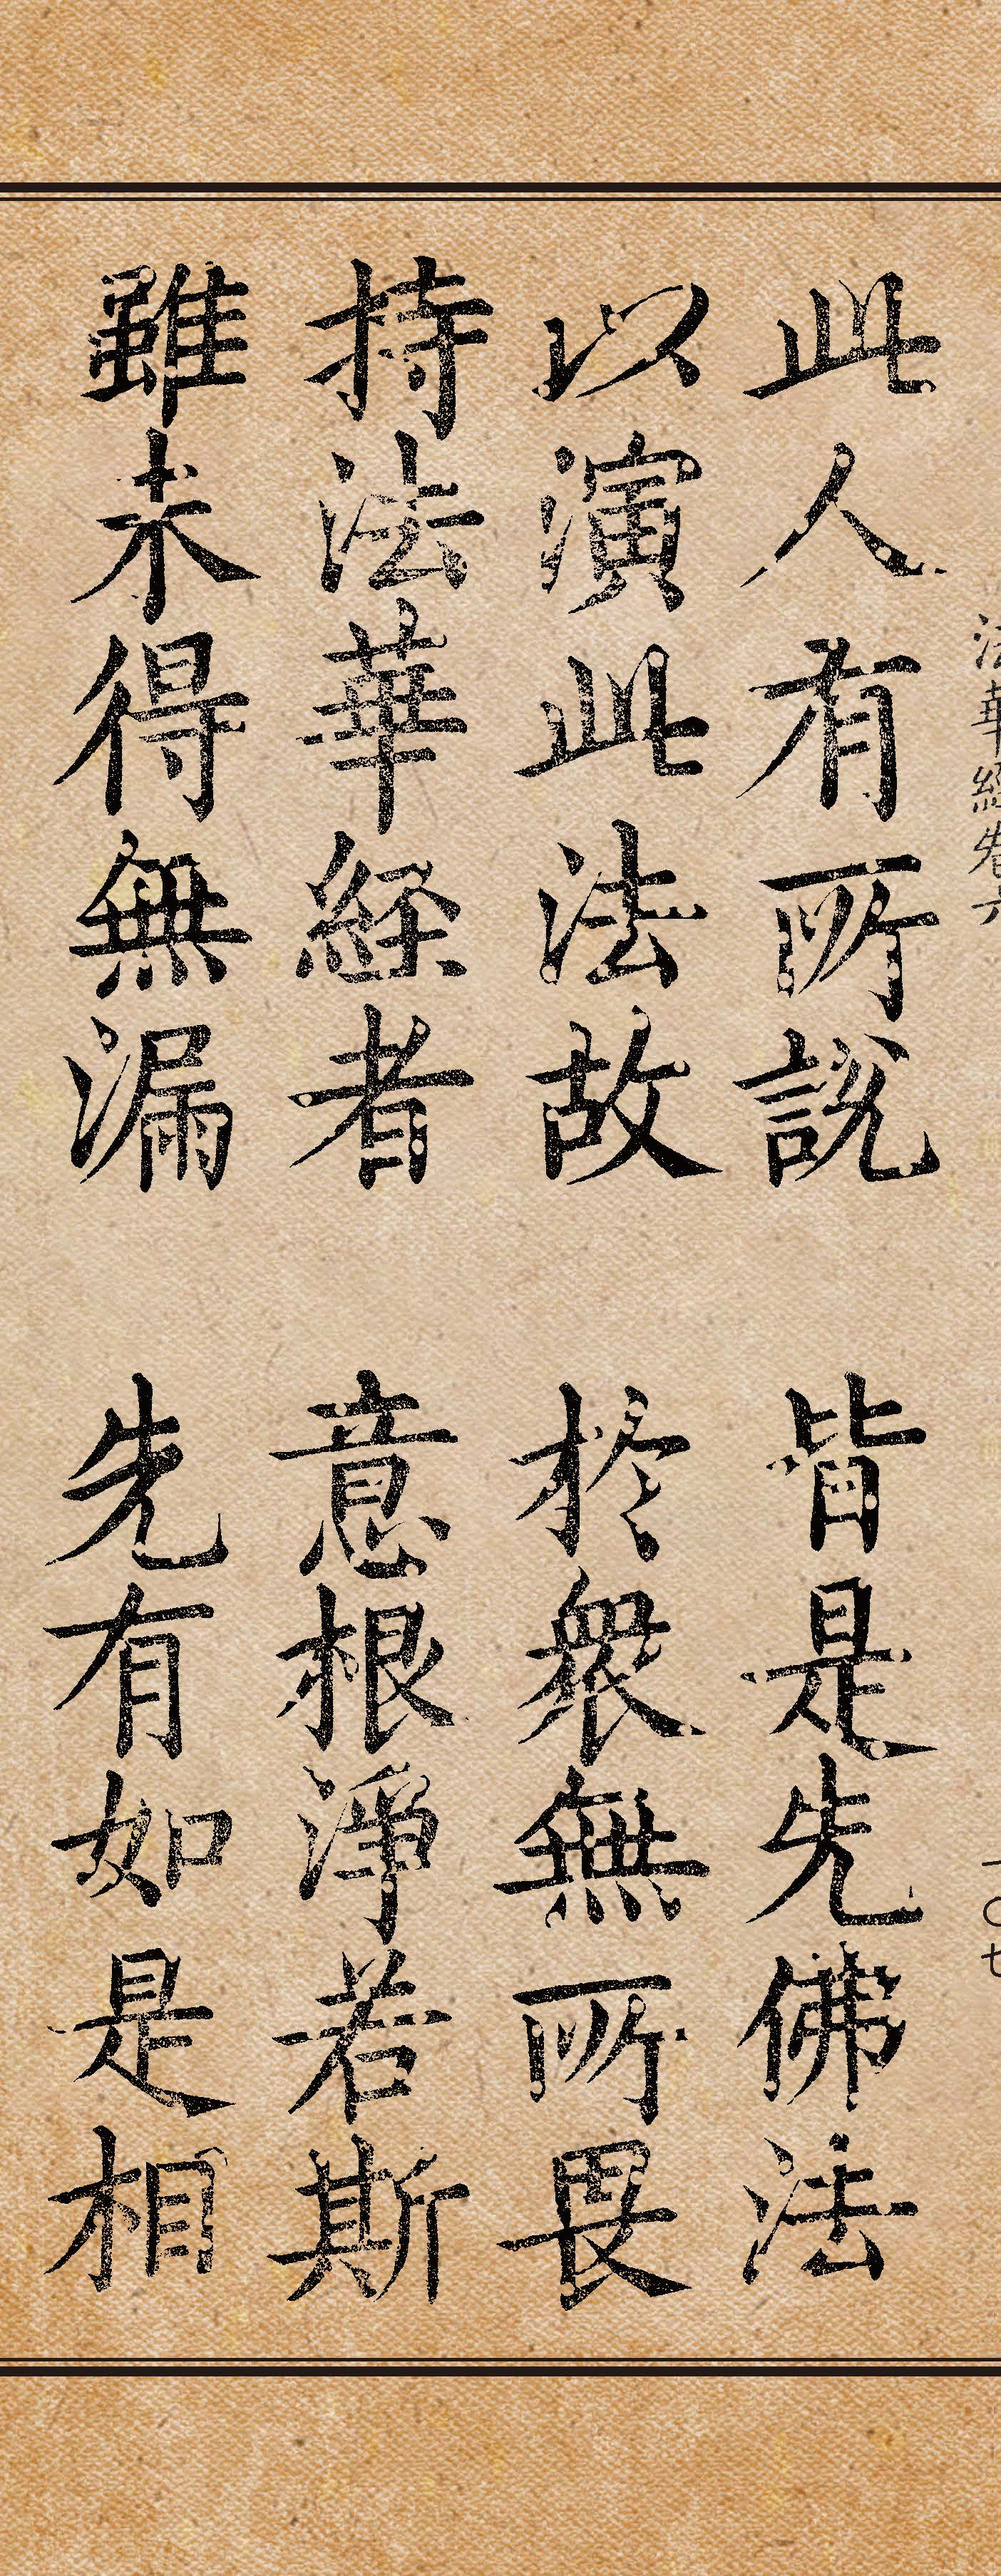 法華經卷六
一〇七
此人有所說 皆是先佛法
以演此法故 於衆無所畏
持法華経者 意根淨若斯
雖未得無漏 先有如是相